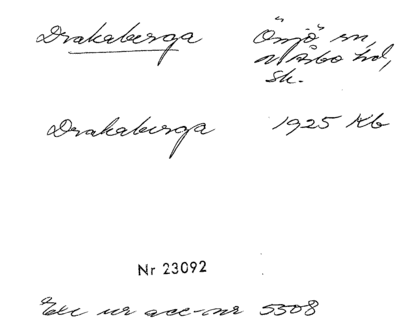 Drakaberga Össjö sn,
N Åsbo hd,
Sk.
Drakaberga 1925 Kb
Nr 23092
Exc ur acc-nr 5308